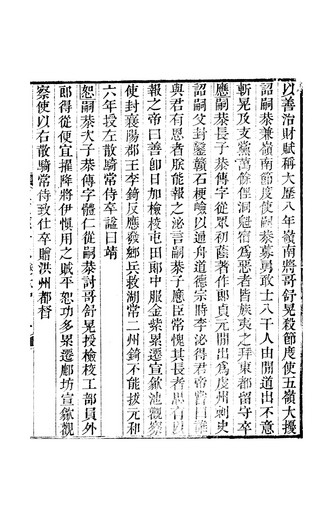 以善治財賦稱大歷八年嶺南將哥舒晃殺節度使五嶺大擾
詔嗣恭兼嶺南節度使嗣恭募勇敢士八千人由間道出不意
斬晃及支黨萬餘俚洞魁宿為惡者皆族夷之拜東都留守卒
應嗣恭長子恭傳字從眾初蔭著作郎貞元間出為虔州刺史
詔嗣父封鑿贛石梗嶮以通舟道德宗時李泌得君帝嘗曰誰
與君有恩者朕能報之泌言嗣恭子應臣常愧其長者思有以
報之帝曰善即日加檢校屯田郎中服金紫累遷宣歙池觀察
使封襄陽郡王李錡反應發鄉兵救湖常二州錡不能拔元和
六年授左散騎常侍卒諡曰靖
恕嗣恭次子恭傳字體仁從嗣恭討哥舒晃授檢校工部員外
郎得從便宜摧降將伊慎用之賊平恕功多累遷鄜坊宣歙觀
察使以右散騎常侍致仕卒贈洪州都督